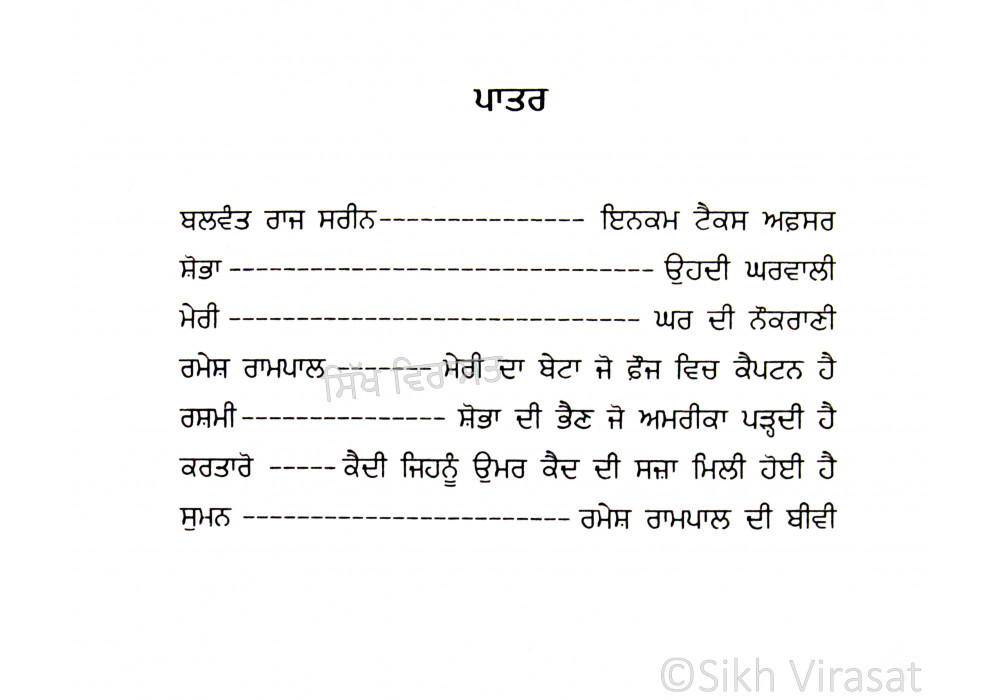 ਪਾਤਰ
ਬਲਵੰਤ ਰਾਜ ਸਰੀਨ--------------- ਇਨਕਮ ਟੈਕਸ ਅਫ਼ਸਰ
ਸ਼ੋਭਾ -------------------------------- ਉਹਦੀ ਘਰਵਾਲੀ
ਮੇਰੀ ------------------------------- ਘਰ ਦੀ ਨੌਕਰਾਣੀ
ਰਮੇਸ਼ ਰਾਮਪਾਲ ------- ਮੇਰੀ ਦਾ ਬੇਟਾ ਜੋ ਫ਼ੌਜ ਵਿਚ ਕੈਪਟਨ ਹੈ
ਸਿੱਖ ਵਿਰਾਸਤ
ਰਸ਼ਮੀ--------------- ਸ਼ੋਭਾ ਦੀ ਭੈਣ ਜੋ ਅਮਰੀਕਾ ਪੜ੍ਹਦੀ ਹੈ
ਕਰਤਾਰੋ -----ਕੈਦੀ ਜਿਹਨੂੰ ਉਮਰ ਕੈਦ ਦੀ ਸਜ਼ਾ ਮਿਲੀ ਹੋਈ ਹੈ
ਸੁਮਨ ------------------------- ਰਮੇਸ਼ ਰਾਮਪਾਲ ਦੀ ਬੀਵੀ
©Sikh Virasat